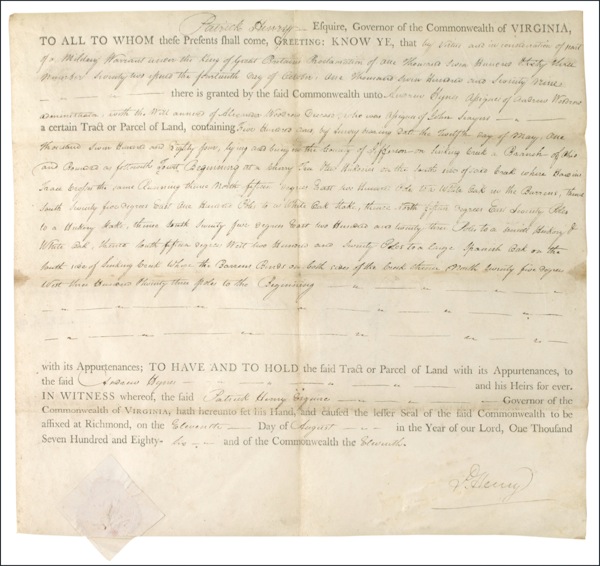 Patrick Henry Esquire, Governor of the Commonwealth of VIRGINIA,
TO ALL TO WHOM these Presents shall come, GREETING: KNOW YE, that by virtue and in consideration of part
of a Military Warrant under the King of Great Britains Proclamation of One Thousand Seven Hundred & Sixty three
Number Seventy two upon the fourteenth day of October One Thousand Seven Hundred and Seventy Nine
there is granted by the said Commonwealth unto Andrew Hynes Assignee of Andrew Woodrow
administrator with the Will annexed of Alexander Woodrow Deceased who was Assignee of John Seayres
a certain Tract or Parcel of Land, containing Five Hundred Acres by Survey bearing Date the Twelfth day of May One
Thousand Seven Hundred and Eighty four, lying and being in the County of Jefferson on Sinking Creek a Branch of Ohio
and Bounded as followeth towit, Beginning at a Cherry Tree Two Hickories on the South side of said Creek where
Trace crosses the same Running thence North fifteen degrees East Hundred Poles to a White Oak in the Barrens, thence
South Seventy five degrees East One Hundred Poles to a White Oak Stake, thence North fifteen degrees East Seventy Poles
to a Hickory Stake, thence South Seventy five degrees East two Hundred and twenty three Poles to a small Hickory &
White Oak, thence South fifteen degrees West two Hundred and Seventy Poles to a large Spanish Oak on the
South side of Sinking Creek Where the Barrens Binds on both sides of the Creek thence North Seventy five degrees
West three Hundred Twenty three Poles to the Beginning
with its Appurtenances; TO HAVE AND TO HOLD the said Tract or Parcel of Land with its Appurtenances, to
the said Andrew Hynes and his Heirs for ever.
IN WITNESS whereof, the said Patrick Henry Esquire Governor of the
Commonwealth of VIRGINIA, hath hereunto set his Hand, and caused the lesser Seal of the said Commonwealth to be
affixed at Richmond, on the Eleventh Day of August in the Year of our Lord, One Thousand
Seven Hundred and Eighty- Six and of the Commonwealth the Eleventh.
P. Henry